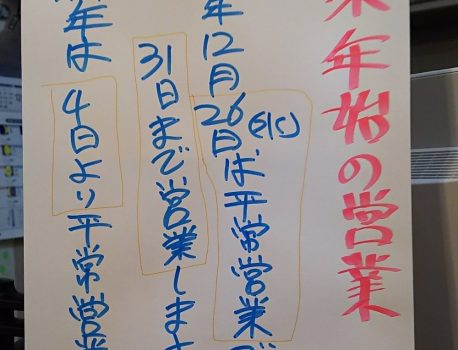 末年始の営業
年12月26日(火)は、平常営業で
31日まで営業します
年は4日より平常営業